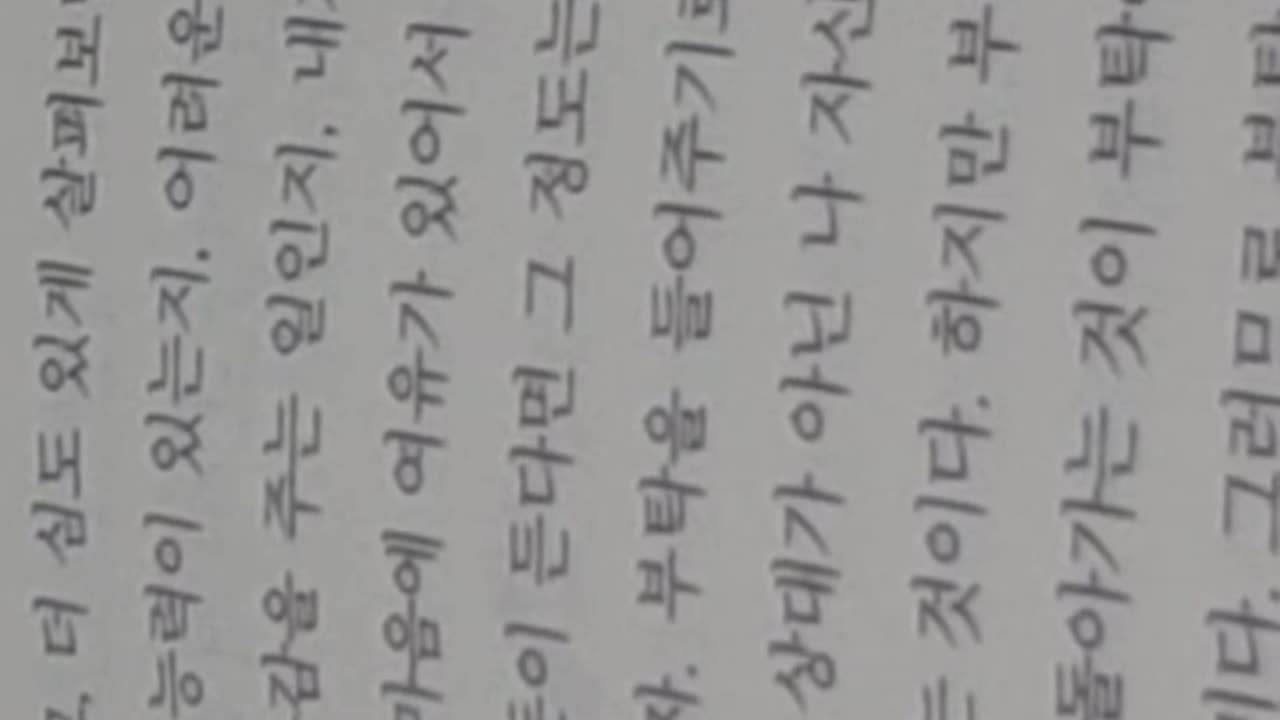 더 심도 있게 살펴보
능력이 있는지. 어려운
감을 주는 일인지. 내
마음에 여유가 있어서
든다면 그 정도는
부탁을 들어주기로
상대가 아닌 나 자신
것이다. 하지만 부
돌아가는 것이 부탁
이다. 그러므로 부탁